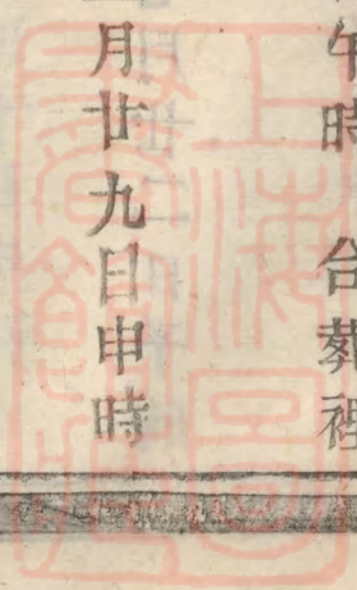 午時 合葬裡
月廿九日申時
上海圖書館藏